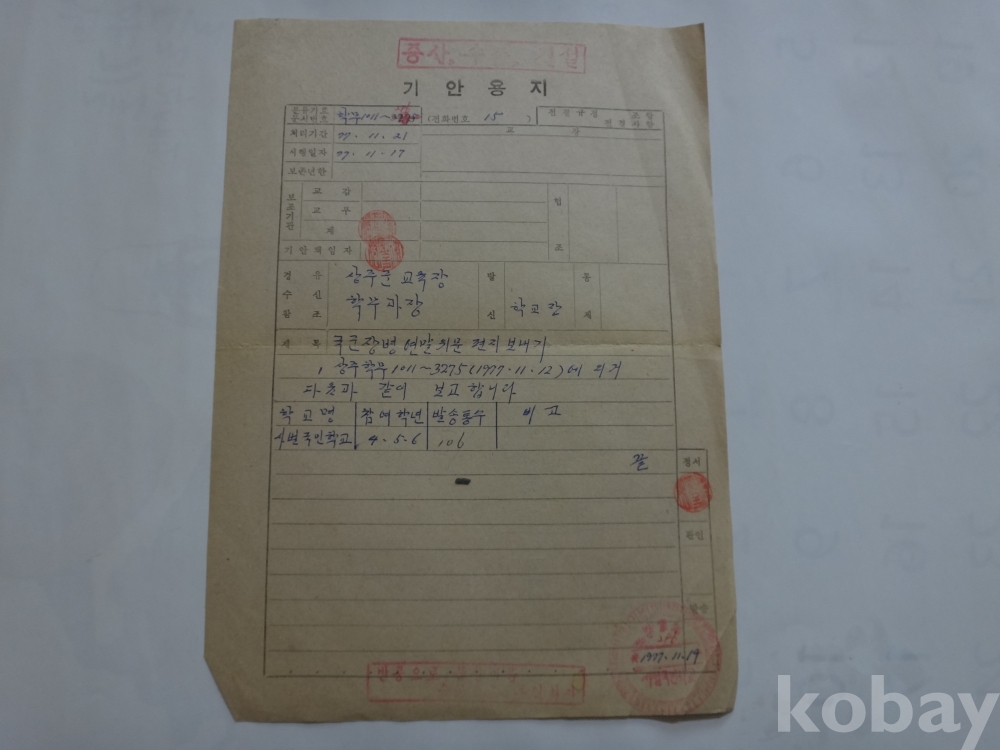 기 안 용 지
분류기호
문서번호 학무1011~ (전화번호 15 ) 전결규정 조항
전결사항
처리기간 77. 11. 21 교 장
시행일자 77. 11. 17
보존년한
보조기관 교 감 협
교 무
계 조
기안책임자
경 유 상주군 교육장 발 통
수 신 학무과장 신 학교장 제
참 조
제 목 국군장병 연말 위문 편지 보내기
1. 상주학무1011~3275(1977. 11. 12)에 의거
다음과 같이 보고합니다
학교명 참여학년 발송통수 비고
사벌국민학교 4. 5. 6 106
끝
정서
관인
발송
1977. 11. 19
kobay